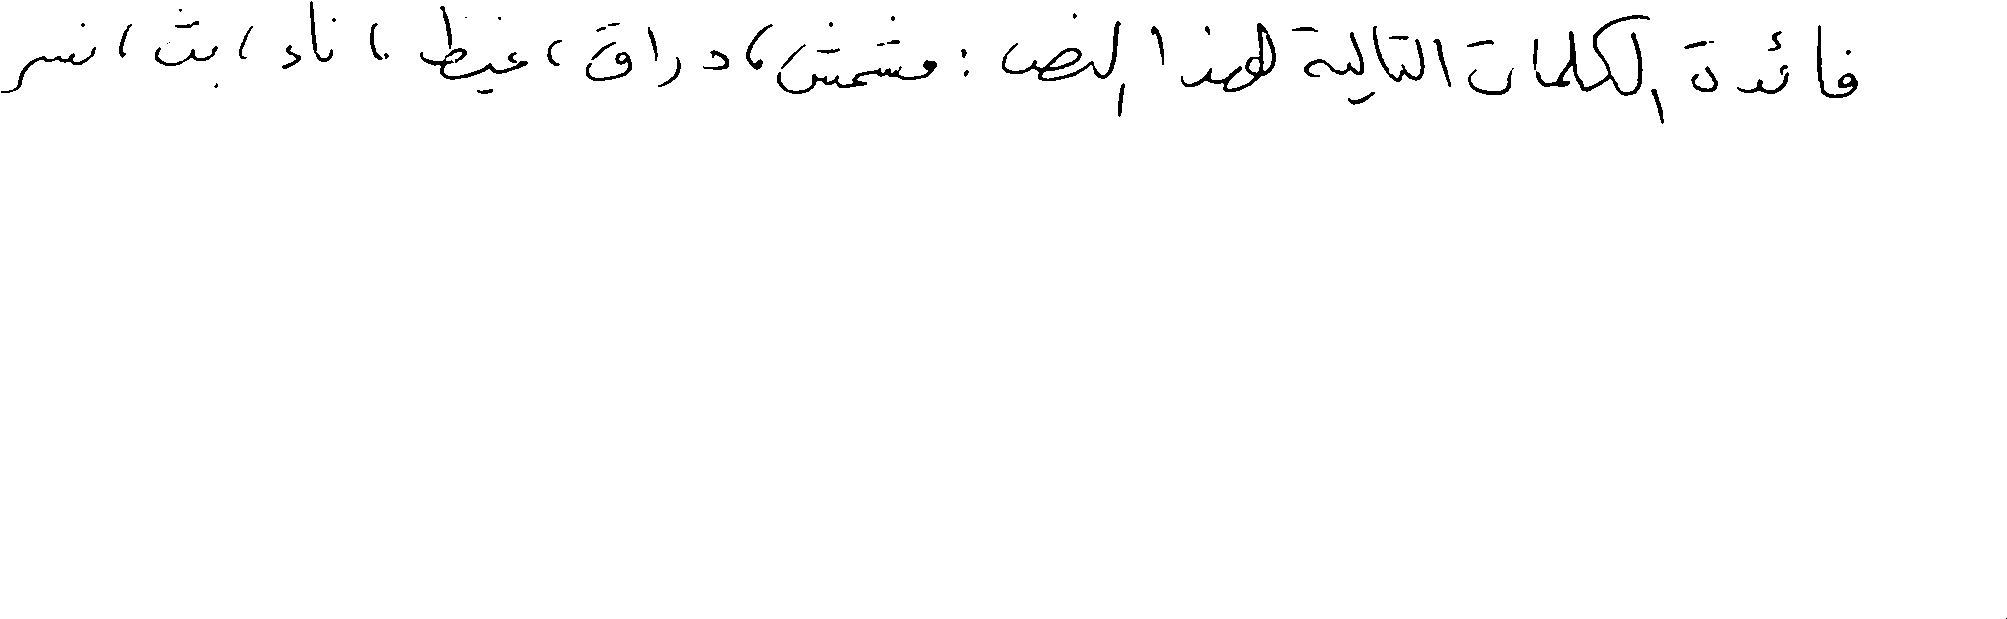 فائدة الكلمات التالية لهذا النص : مشمش، دراق، غيظ، ناد، بث، نسر